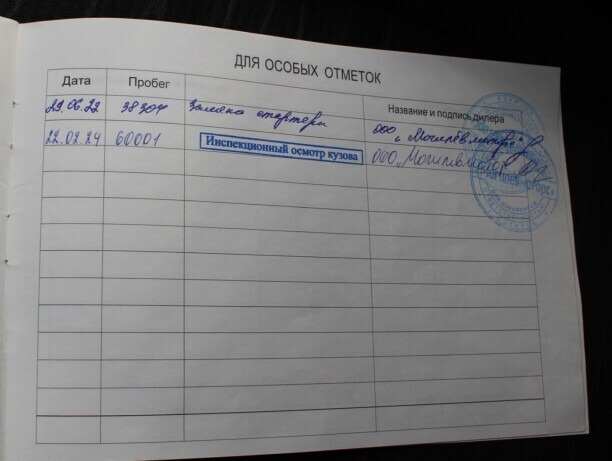 ДЛЯ ОСОБЫХ ОТМЕТОК
Дата Пробег Название и подпись дилера
29.06.22 38304 Замена стартера ООО „Могилёвмотор"
22.02.24 60001 Инспекционный осмотр кузова ООО „Могилёвмотор"